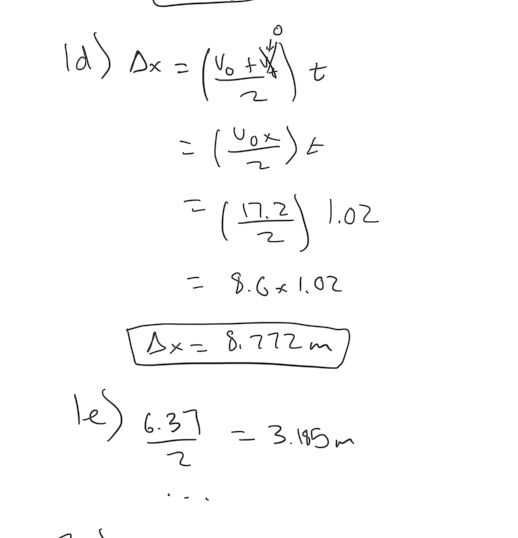 1d) Δx = ((v₀ + v_f → 0)/2) t
= (v₀ₓ/2) t
= (17.2/2) 1.02
= 8.6 × 1.02
Δx = 8.772 m
1e) 6.37/2 = 3.185 m
...